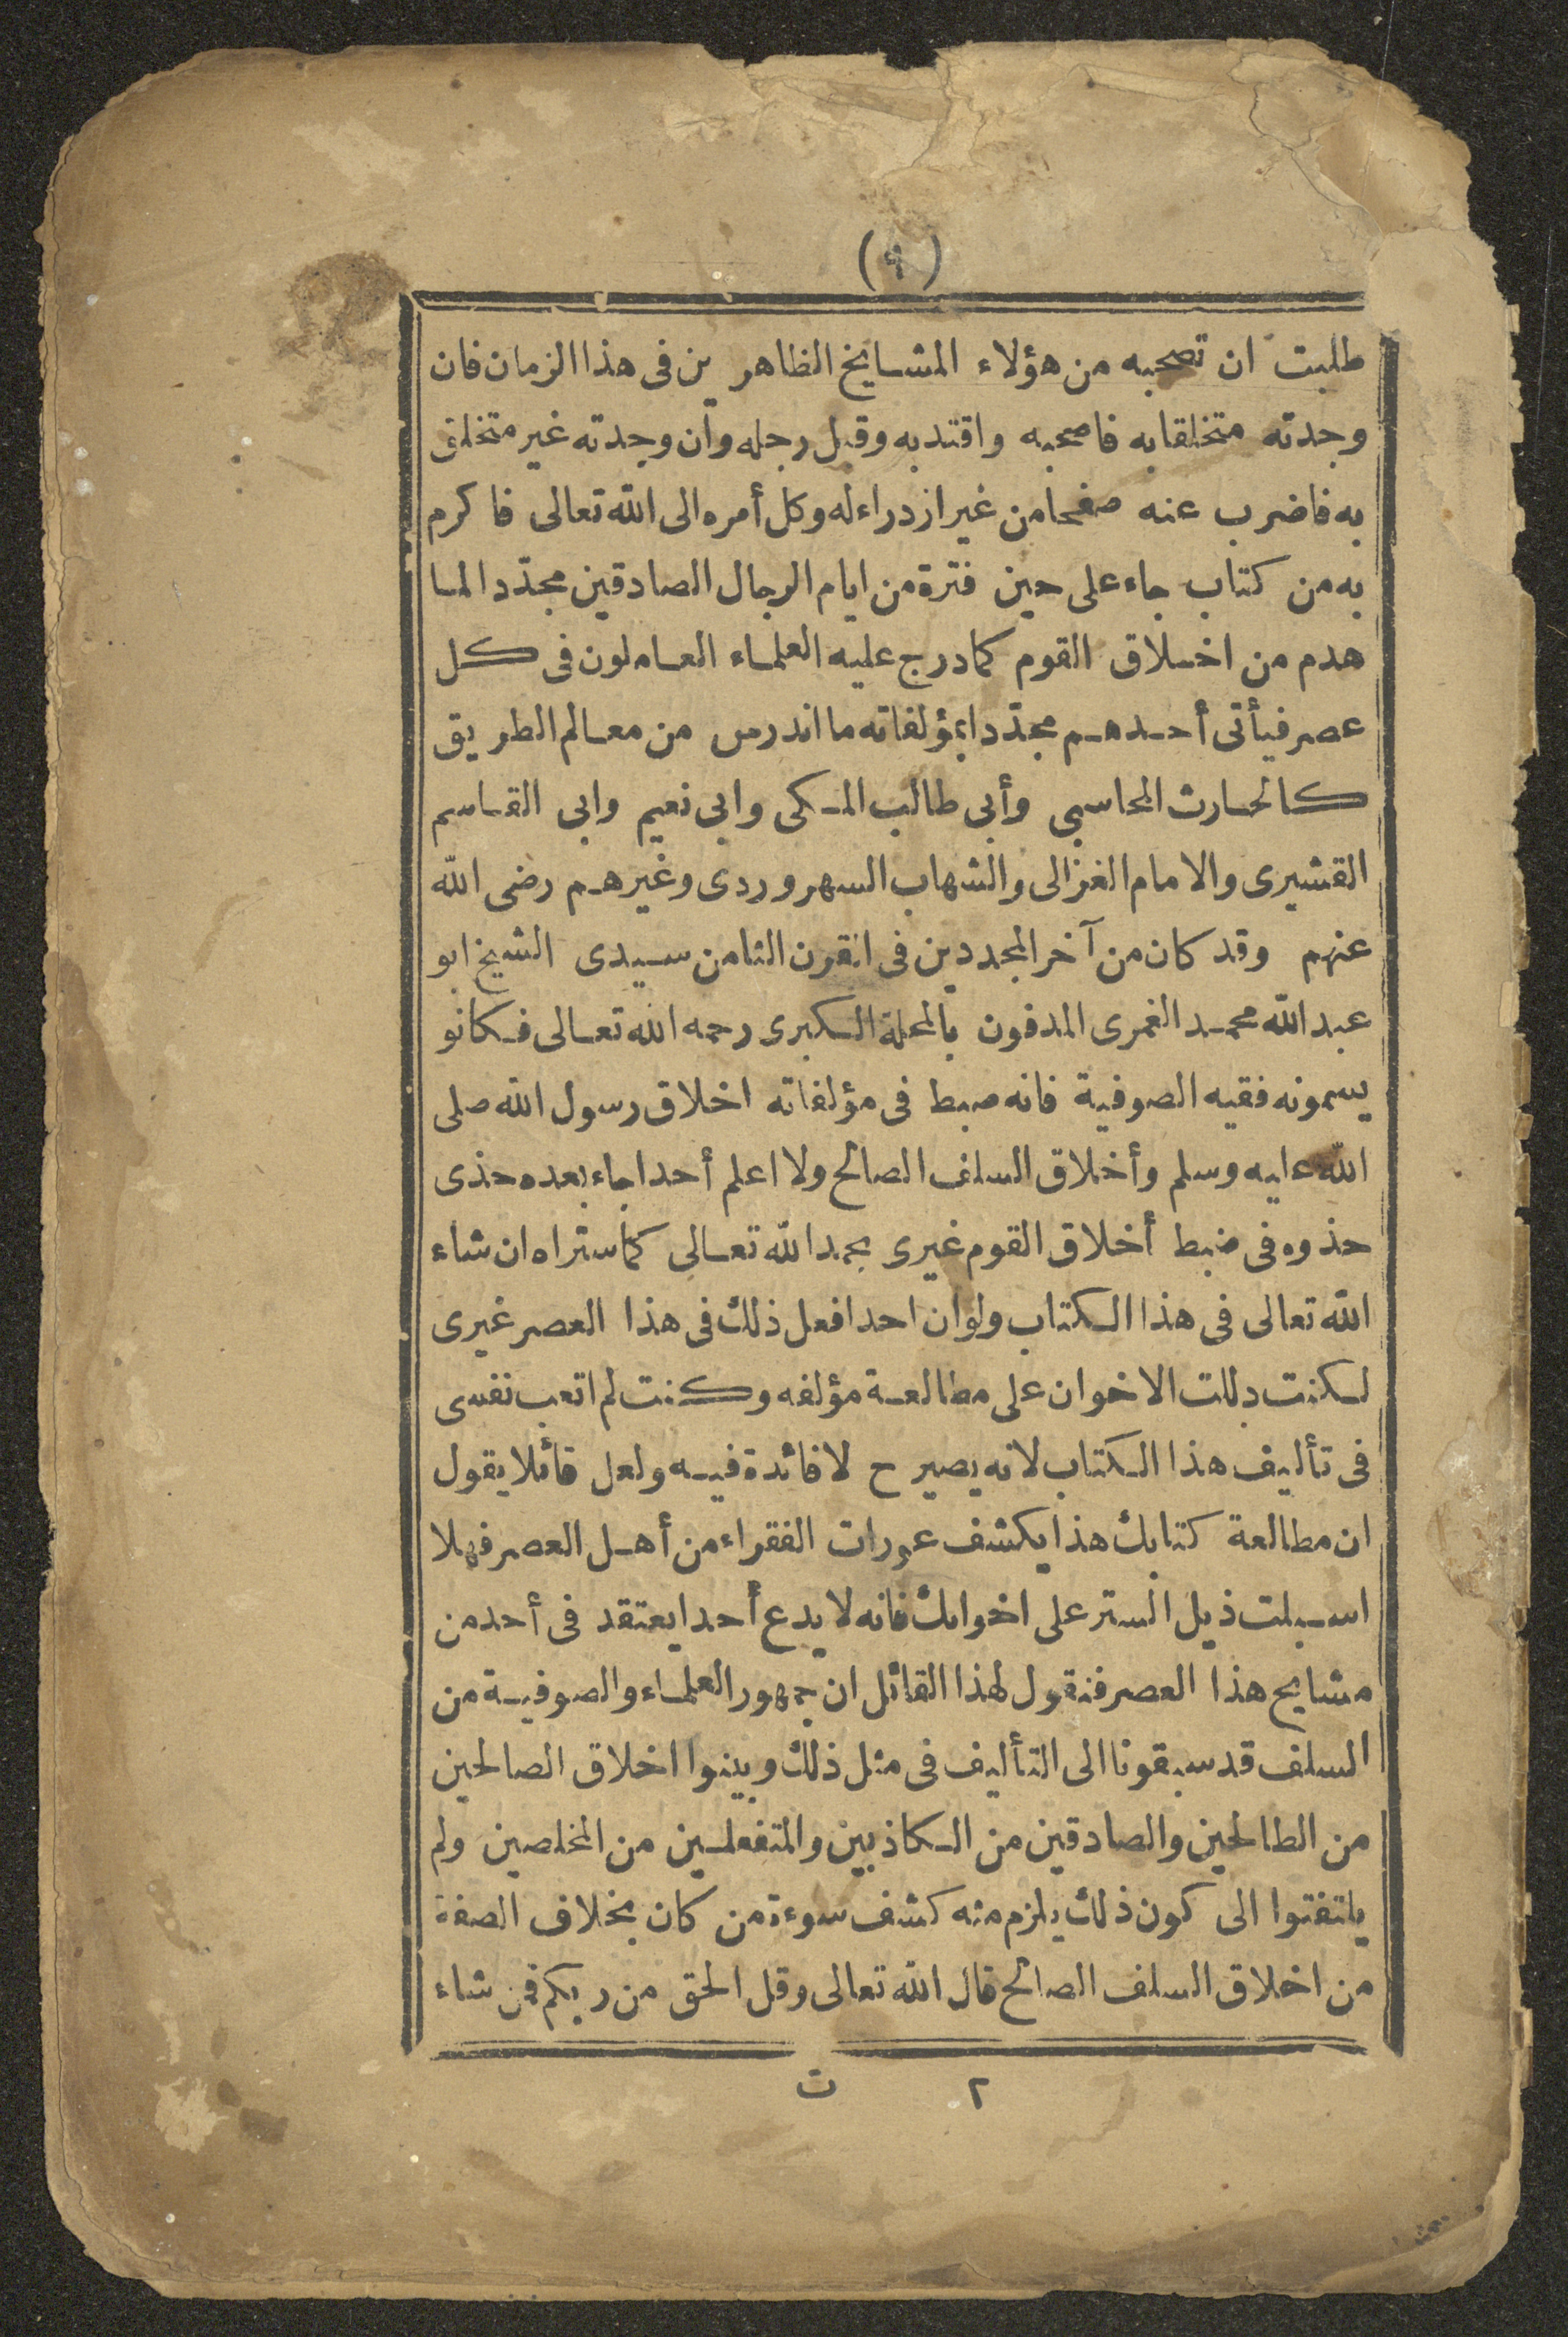 (٩)
طلبت ان تصحبه من هؤلاء المشايخ الظاهرين فى هذا الزمان فان
وجدته متخلقا به فاصحبه واقتد به وقبل رجله وان وجدته غير متخلق
به فاضرب عنه صفحا من غير ازدراء له وكل أمره الى الله تعالى فاكرم
به من كتاب جاء على حين فترة من ايام الرجال الصادقين مجدّدا لما
هدم من اخلاق القوم كما درج عليه العلماء العاملون فى كل
عصر فيأتى أحدهم مجدّدا بمؤلفاته ما اندرس من معالم الطريق
كالحارث المحاسبى وأبى طالب المكى وابى نعيم وابى القاسم
القشيرى والامام الغزالى والشهاب السهروردى وغيرهم رضى الله
عنهم وقد كان من آخر المجددين فى القرن الثامن سيدى الشيخ ابو
عبد الله محمد الغمرى المدفون بالمحلة الكبرى رحمه الله تعالى فكانو
يسمونه فقيه الصوفية فانه ضبط فى مؤلفاته اخلاق رسول الله صلى
الله عليه وسلم وأخلاق السلف الصالح ولا اعلم أحدا جاء بعده حذى
حذوه فى ضبط أخلاق القوم غيرى بحمد الله تعالى كما ستراه ان شاء
الله تعالى فى هذا الكتاب ولو ان احدا فعل ذلك فى هذا العصر غيرى
لكنت دللت الاخوان على مطالعة مؤلفه وكنت لم اتعب نفسى
فى تأليف هذا الكتاب لانه يصير ح لا فائدة فيه ولعل قائلا يقول
ان مطالعة كتابك هذا يكشف عورات الفقراء من أهل العصر فهلا
اسبلت ذيل الستر على اخوانك فانه لا يدع أحدا يعتقد فى أحد من
مشايخ هذا العصر فنقول لهذا القائل ان جمهور العلماء والصوفية من
السلف قد سبقونا الى التأليف فى مثل ذلك وبينوا اخلاق الصالحين
من الطالحين والصادقين من الكاذبين والمتفعلين من المخلصين ولم
يلتفتوا الى كون ذلك يلزم منه كشف سوءة من كان بخلاف الصفة
من اخلاق السلف الصالح قال الله تعالى وقل الحق من ربكم فمن شاء
٢ ت